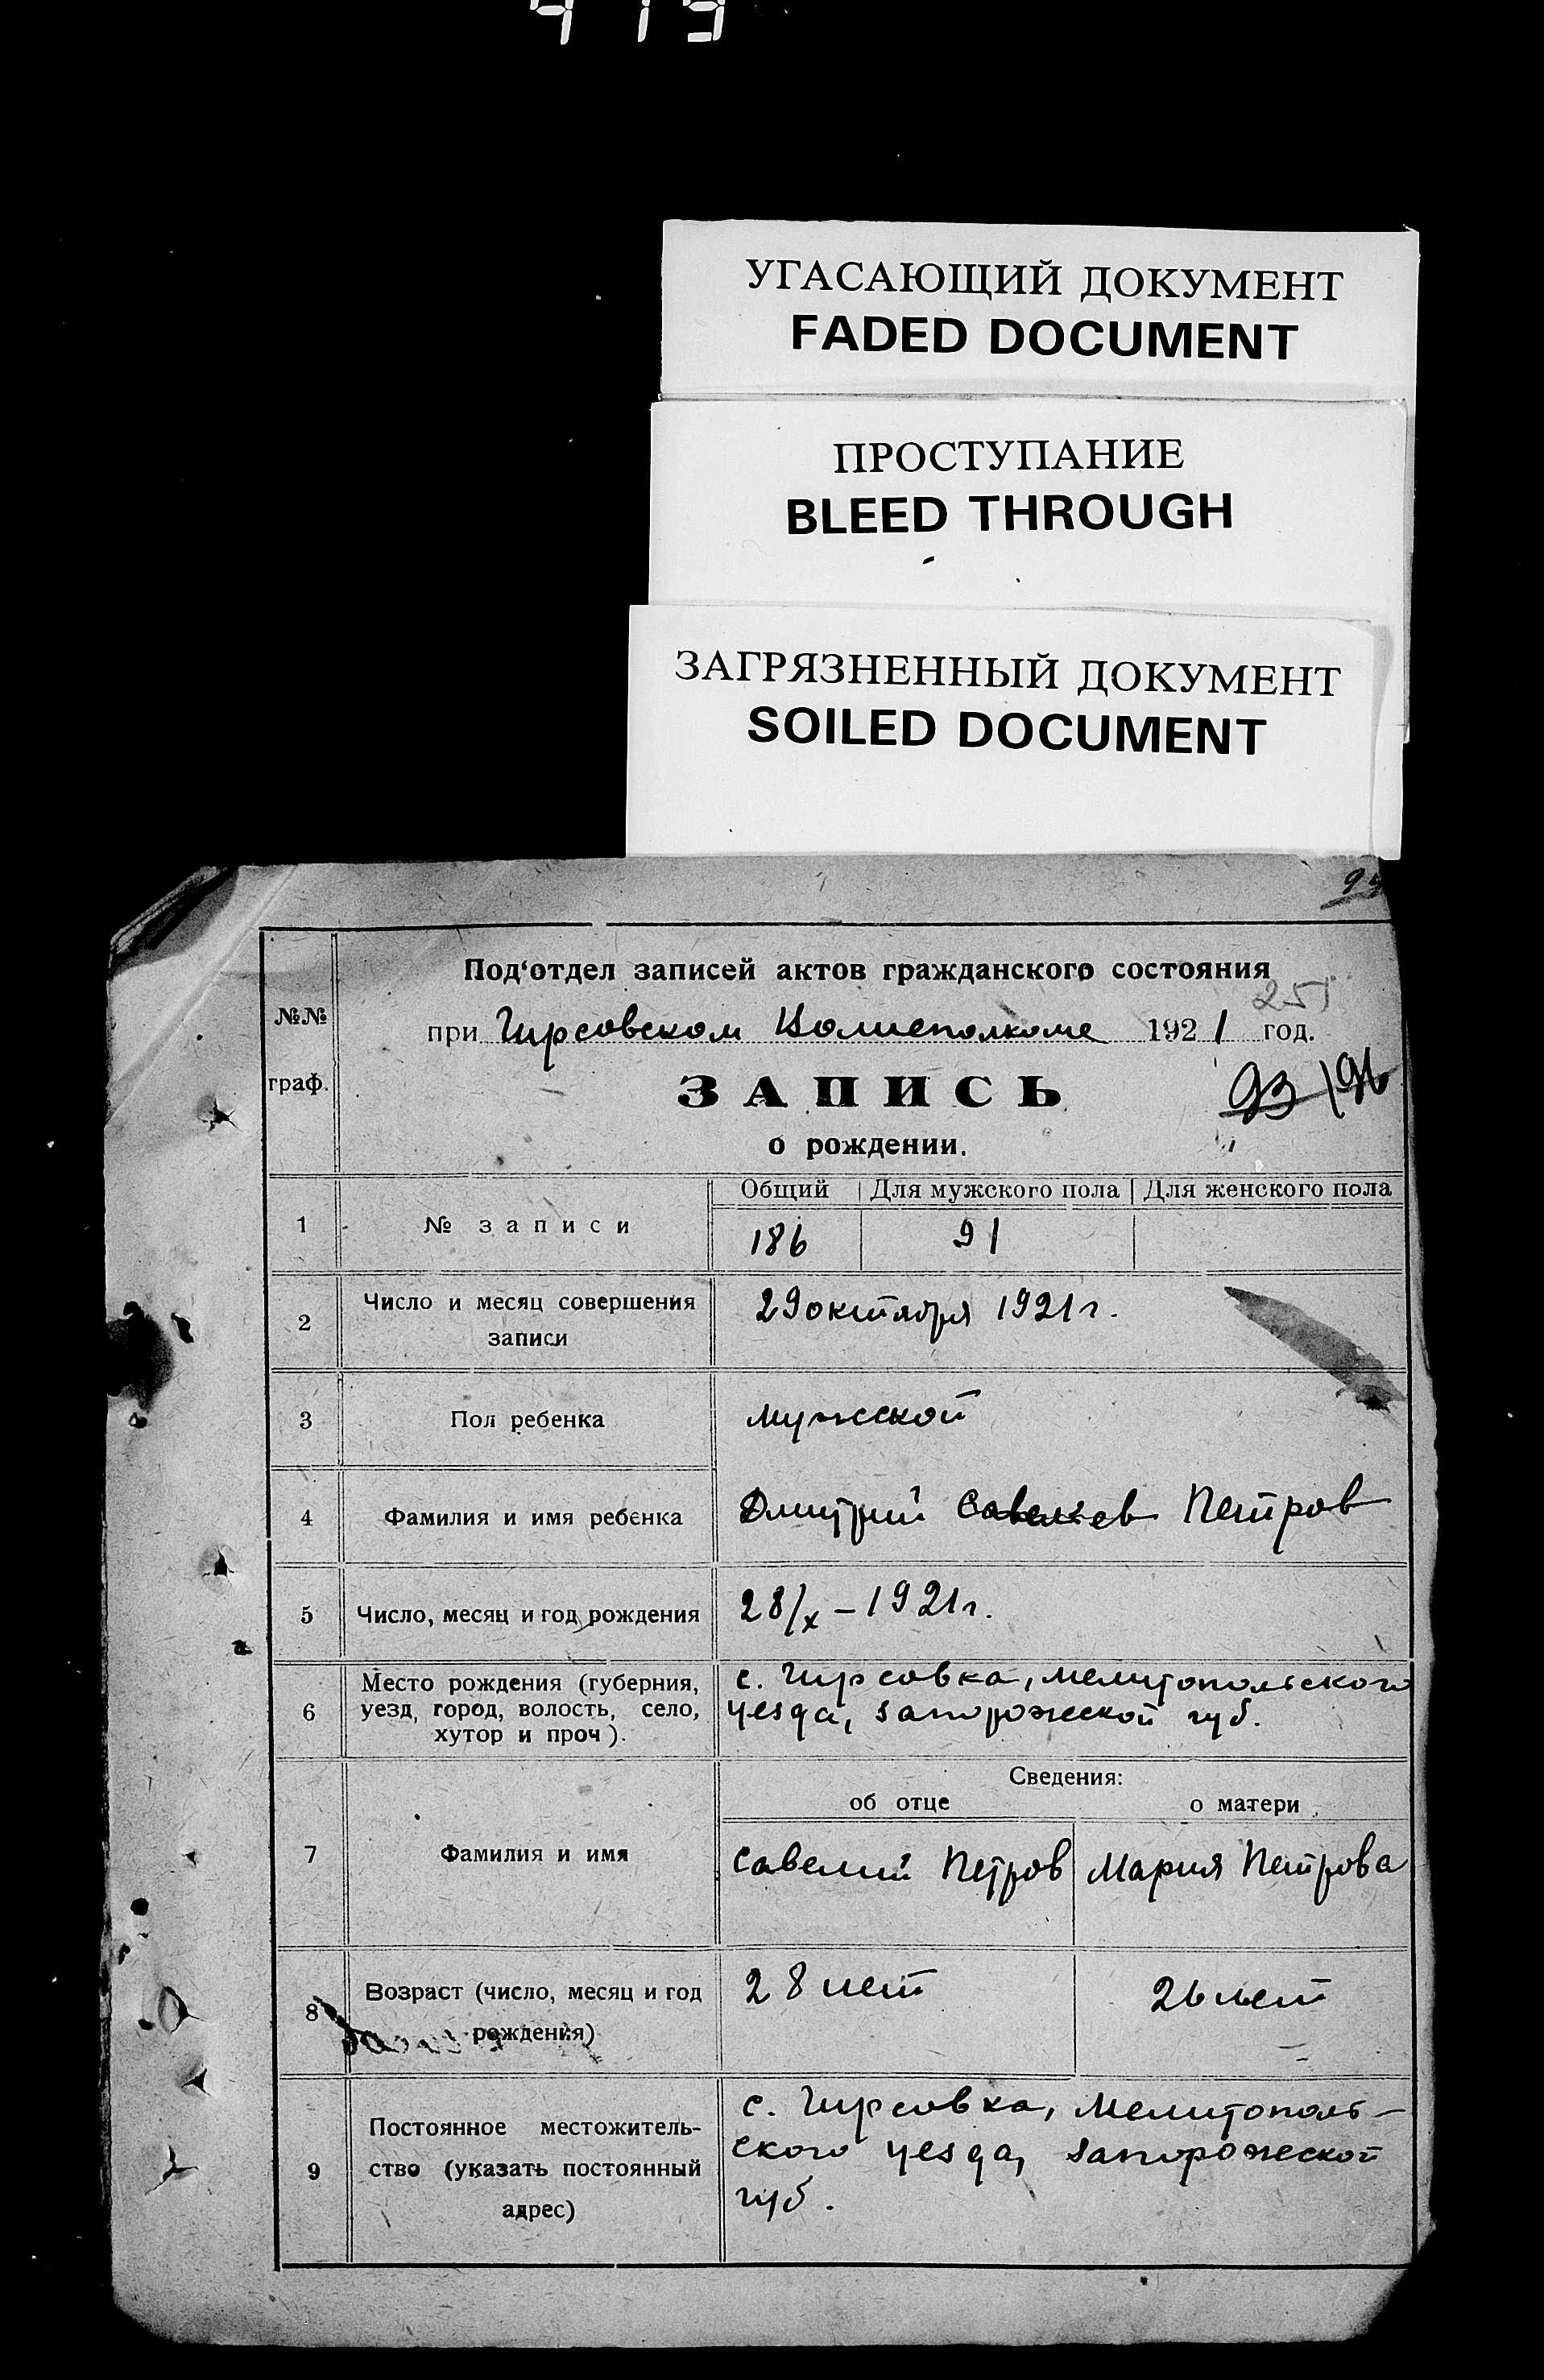 419
УГАСАЮЩИЙ ДОКУМЕНТ
FADED DOCUMENT
ПРОСТУПАНИЕ
BLEED THROUGH
ЗАГРЯЗНЕННЫЙ ДОКУМЕНТ
SOILED DOCUMENT
№№ граф.
Под‘отдел записей актов гражданского состояния
251
при Гирсовском Волисполкоме 1921 год.
ЗАПИСЬ
93 96
о рождении.
Общий Для мужского пола Для женского пола
1 № записи 186 91
2 Число и месяц совершения 29 октября 1921 г.
записи
3 Пол ребенка мужской
4 Фамилия и имя ребенка Дмитрий Савельев Петров
5 Число, месяц и год рождения 28/X – 1921 г.
6 Место рождения (губерния, с. Гирсовка, Мелитопольского
уезд, город, волость, село, уезда, Запорожской губ.
хутор и проч).
Сведения:
об отце о матери
7 Фамилия и имя Савелий Петров Мария Петрова
8 Возраст (число, месяц и год 28 лет 26 лет
рождения)
9 Постоянное местожитель- с. Гирсовка, Мелитополь-
ство (указать постоянный ского уезда, Запорожской
адрес) губ.